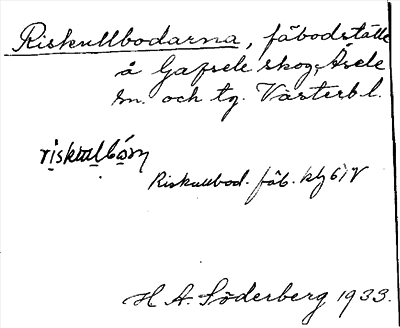 Riskullbodarna, fäbodställe
å Gafsele skog, Åsele
sn. och tg. Västerb l.
riskulbón
Riskullbod. fäb. klj 61V
H A. Söderberg 1933.